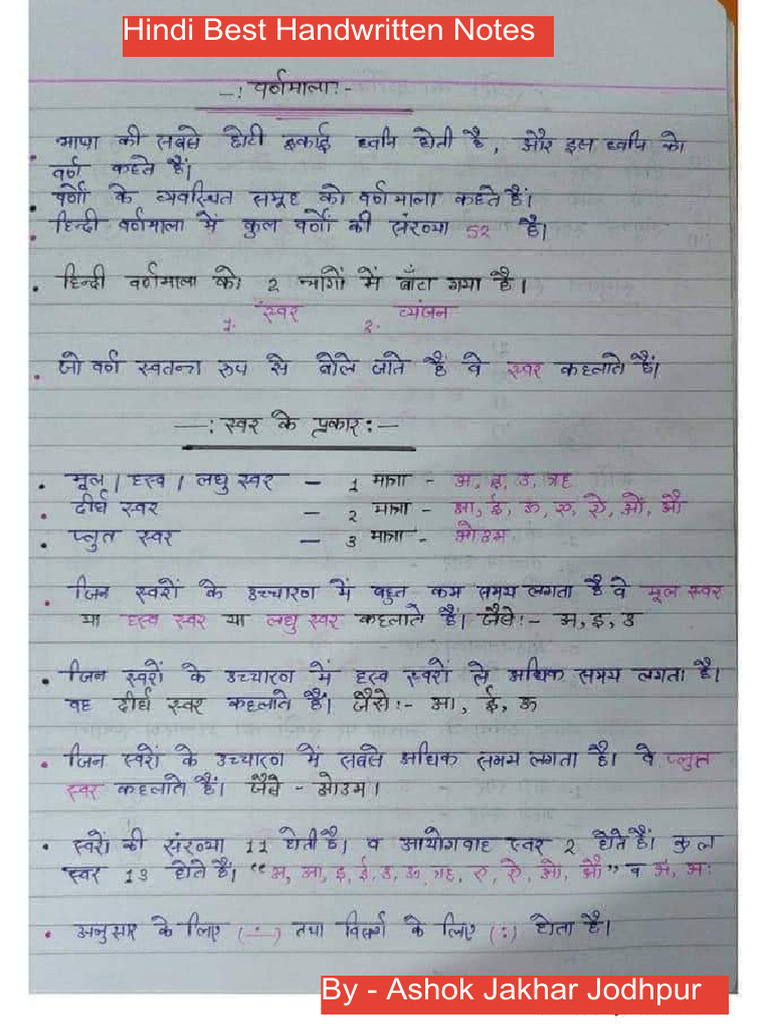 Hindi Best Handwritten Notes
-: वर्णमाला :-
भाषा की सबसे छोटी इकाई ध्वनि होती है, और इस ध्वनि को
वर्ण कहते हैं।
वर्णों के व्यवस्थित समूह को वर्णमाला कहते हैं।
हिन्दी वर्णमाला में कुल वर्णों की संख्या 52 है।
हिन्दी वर्णमाला को 2 भागों में बाँटा गया है।
1. स्वर 2. व्यंजन
जो वर्ण स्वतन्त्र रुप से बोले जाते हैं वे स्वर कहलाते हैं।
-: स्वर के प्रकार :-
मूल / ह्स्व / लघु स्वर - 1 मात्रा - अ, इ, उ, ऋ
दीर्घ स्वर - 2 मात्रा - आ, ई, ऊ, ए, ऐ, ओ, औ
प्लुत स्वर - 3 मात्रा - ओउम
जिन स्वरों के उच्चारण में बहुत कम समय लगता है वे मूल स्वर
या ह्स्व स्वर या लघु स्वर कहलाते हैं। जैसे :- अ, इ, उ
जिन स्वरों के उच्चारण में ह्स्व स्वरों से अधिक समय लगता है।
वह दीर्घ स्वर कहलाते हैं। जैसे :- आ, ई, ऊ
जिन स्वरों के उच्चारण में सबसे अधिक समय लगता है। वे प्लुत
स्वर कहलाते हैं। जैसे - ओउम।
स्वरों की संख्या 11 होती है। व आयोगवाह स्वर 2 होते हैं। कुल
स्वर 13 होते हैं। "अ, आ, इ, ई, उ, ऊ, ऋ, ए, ऐ, ओ, औ" व अं, अः
अनुसार के लिए (∸) तथा विसर्ग के लिए (:) होता है।
By - Ashok Jakhar Jodhpur